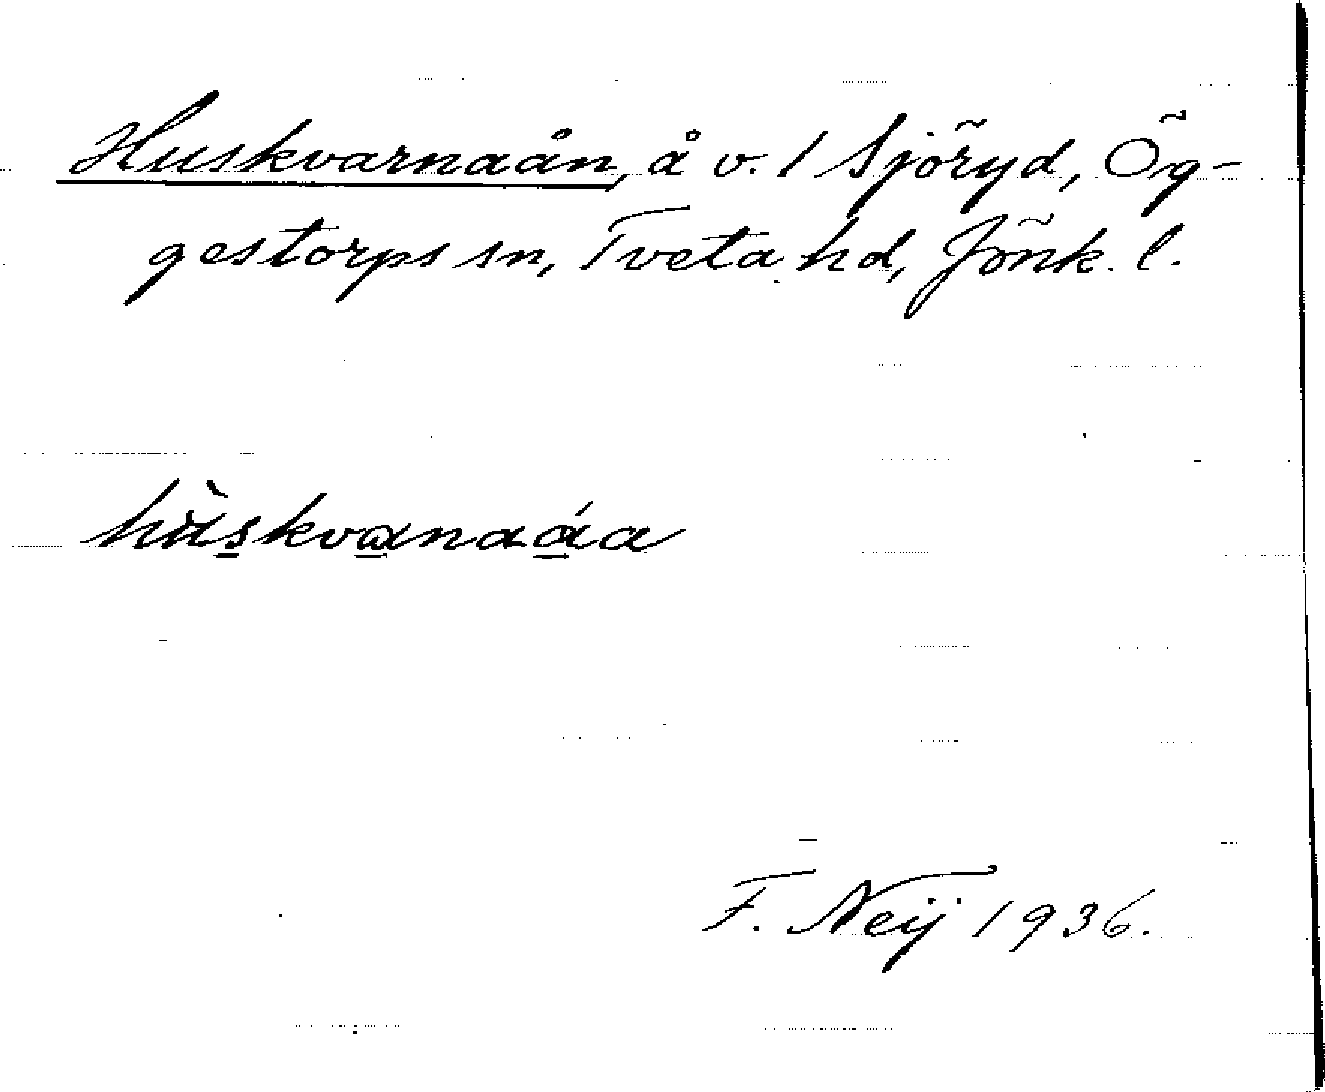 Huskvarnaån, å v. 1 Sjöryd, Ög-
gestorps sn, Tveta hd, Jönk. l.
hùskvanaáa
F. Neij 1936.